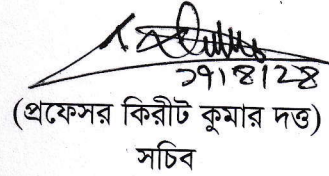 ২৭।৪।২৪
(প্রফেসর কিরীট কুমার দত্ত)
সচিব